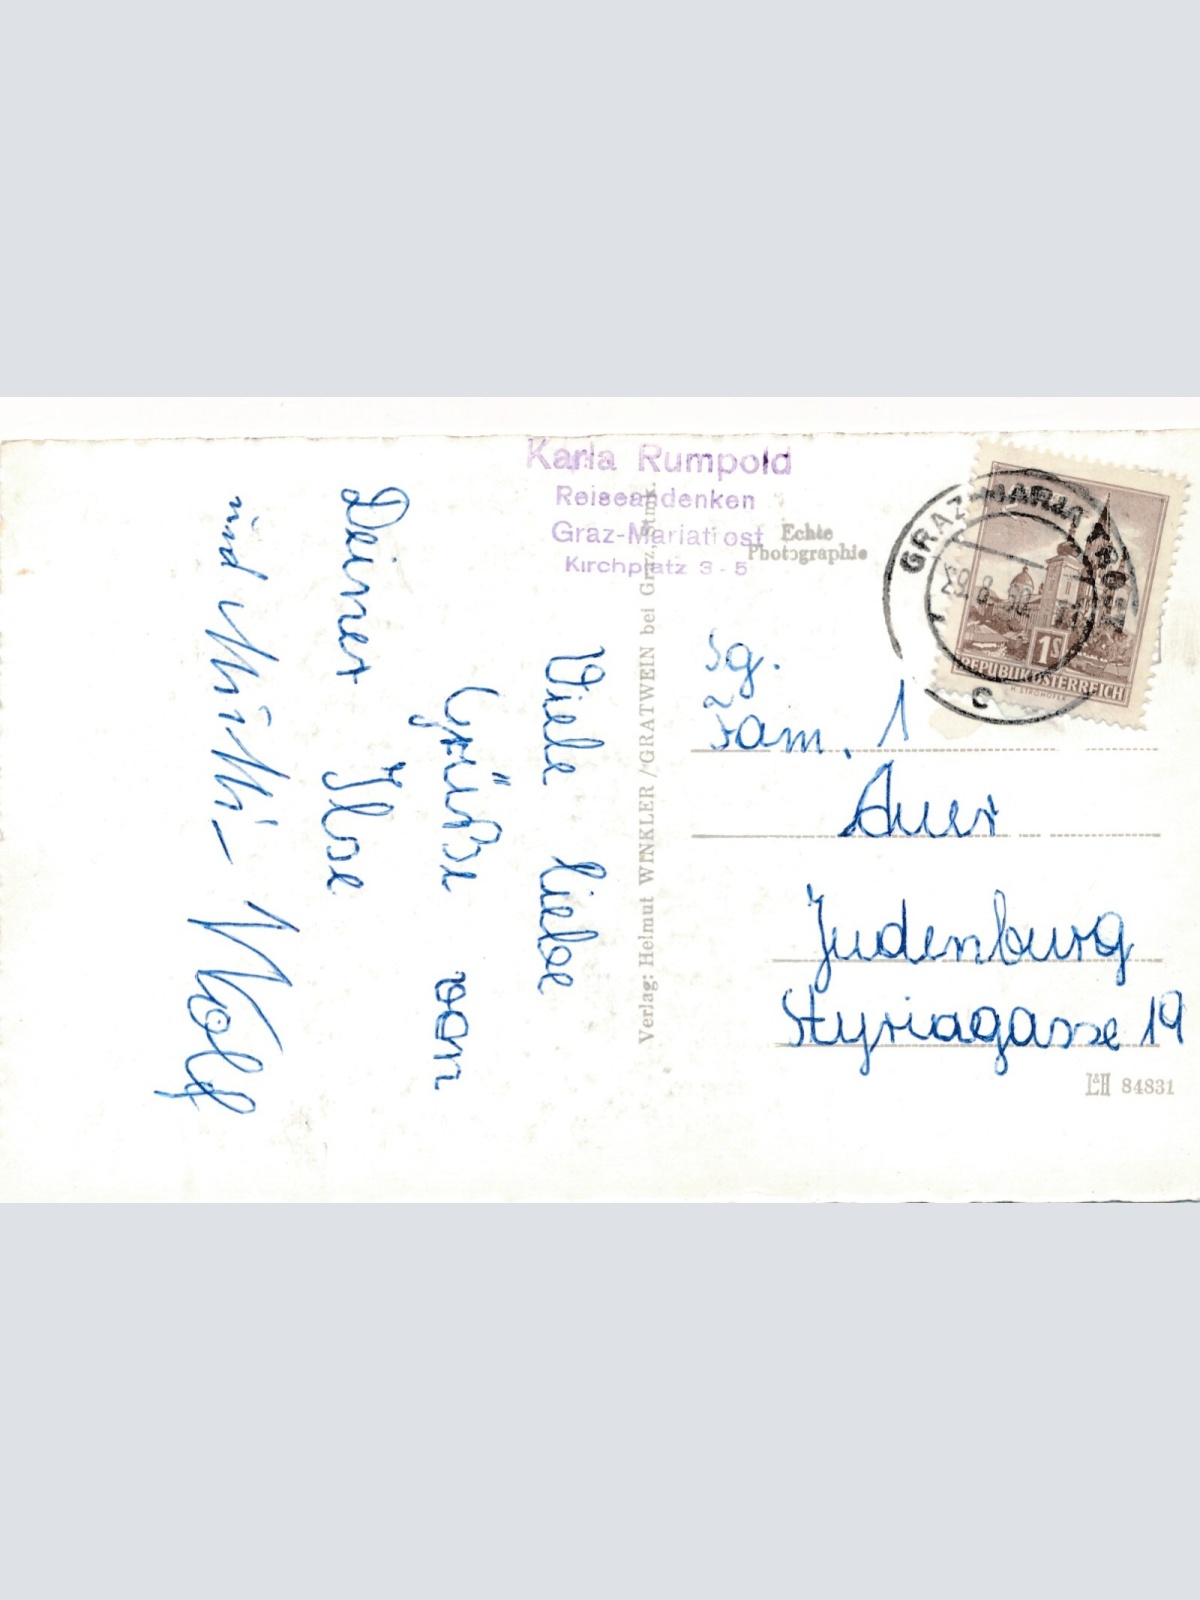 Karla Rumpold
Reiseandenken
Graz-Mariatrost
Kirchplatz 3 - 5
Echte
Photographie
GRAZ-MARIATROST
c
1S
REPUBLIK ÖSTERREICH
Viele liebe
Grüße von
Deiner Ilse
und Mutti - Wolf
Verlag: Helmut WINKLER / GRATWEIN bei Graz, Stmk.
Sg.
Fam.
Auer
Judenburg
Styriagasse 19
L&H 84831